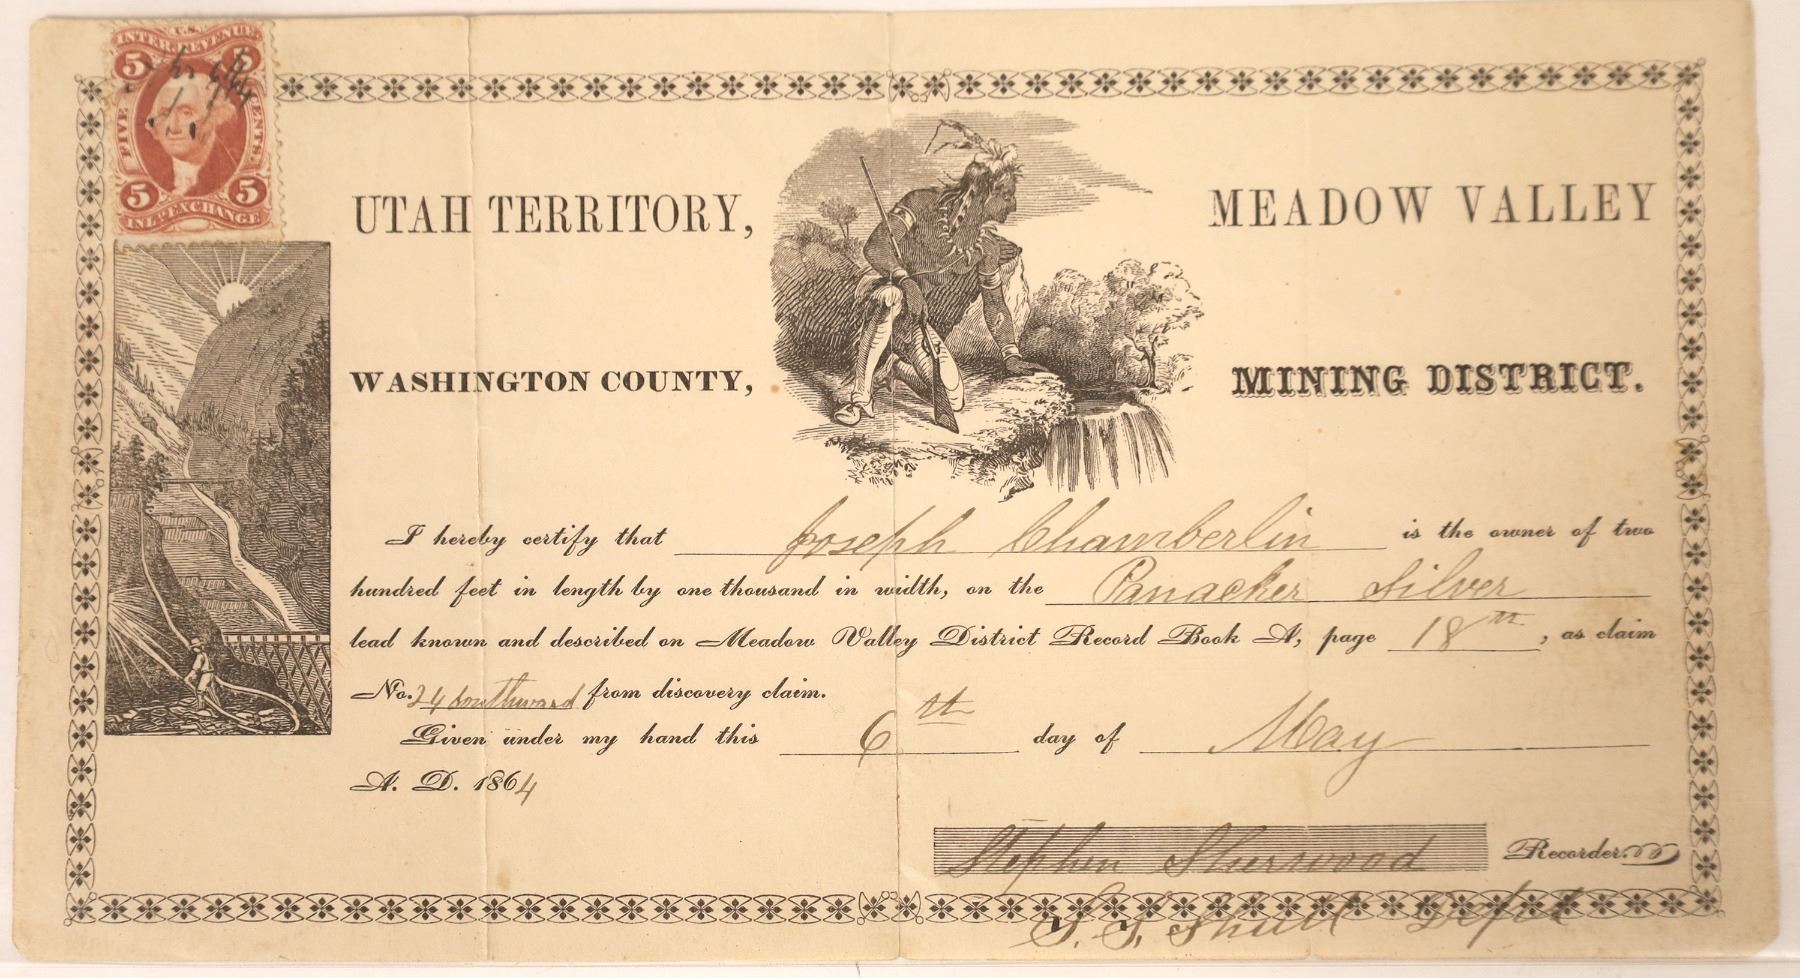 U.S.
INTER. REVENUE
5 5
FIVE CENTS.
5 5
INL. EXCHANGE
UTAH TERRITORY, MEADOW VALLEY
WASHINGTON COUNTY, MINING DISTRICT.
I hereby certify that Joseph Chamberlin is the owner of two
hundred feet in length by one thousand in width, on the Panacker Silver
lead known and described on Meadow Valley District Record Book A, page 18th, as claim
No. 24 Southward from discovery claim.
Given under my hand this 6th day of May
A. D. 1864
Stephen Sherwood Recorder.